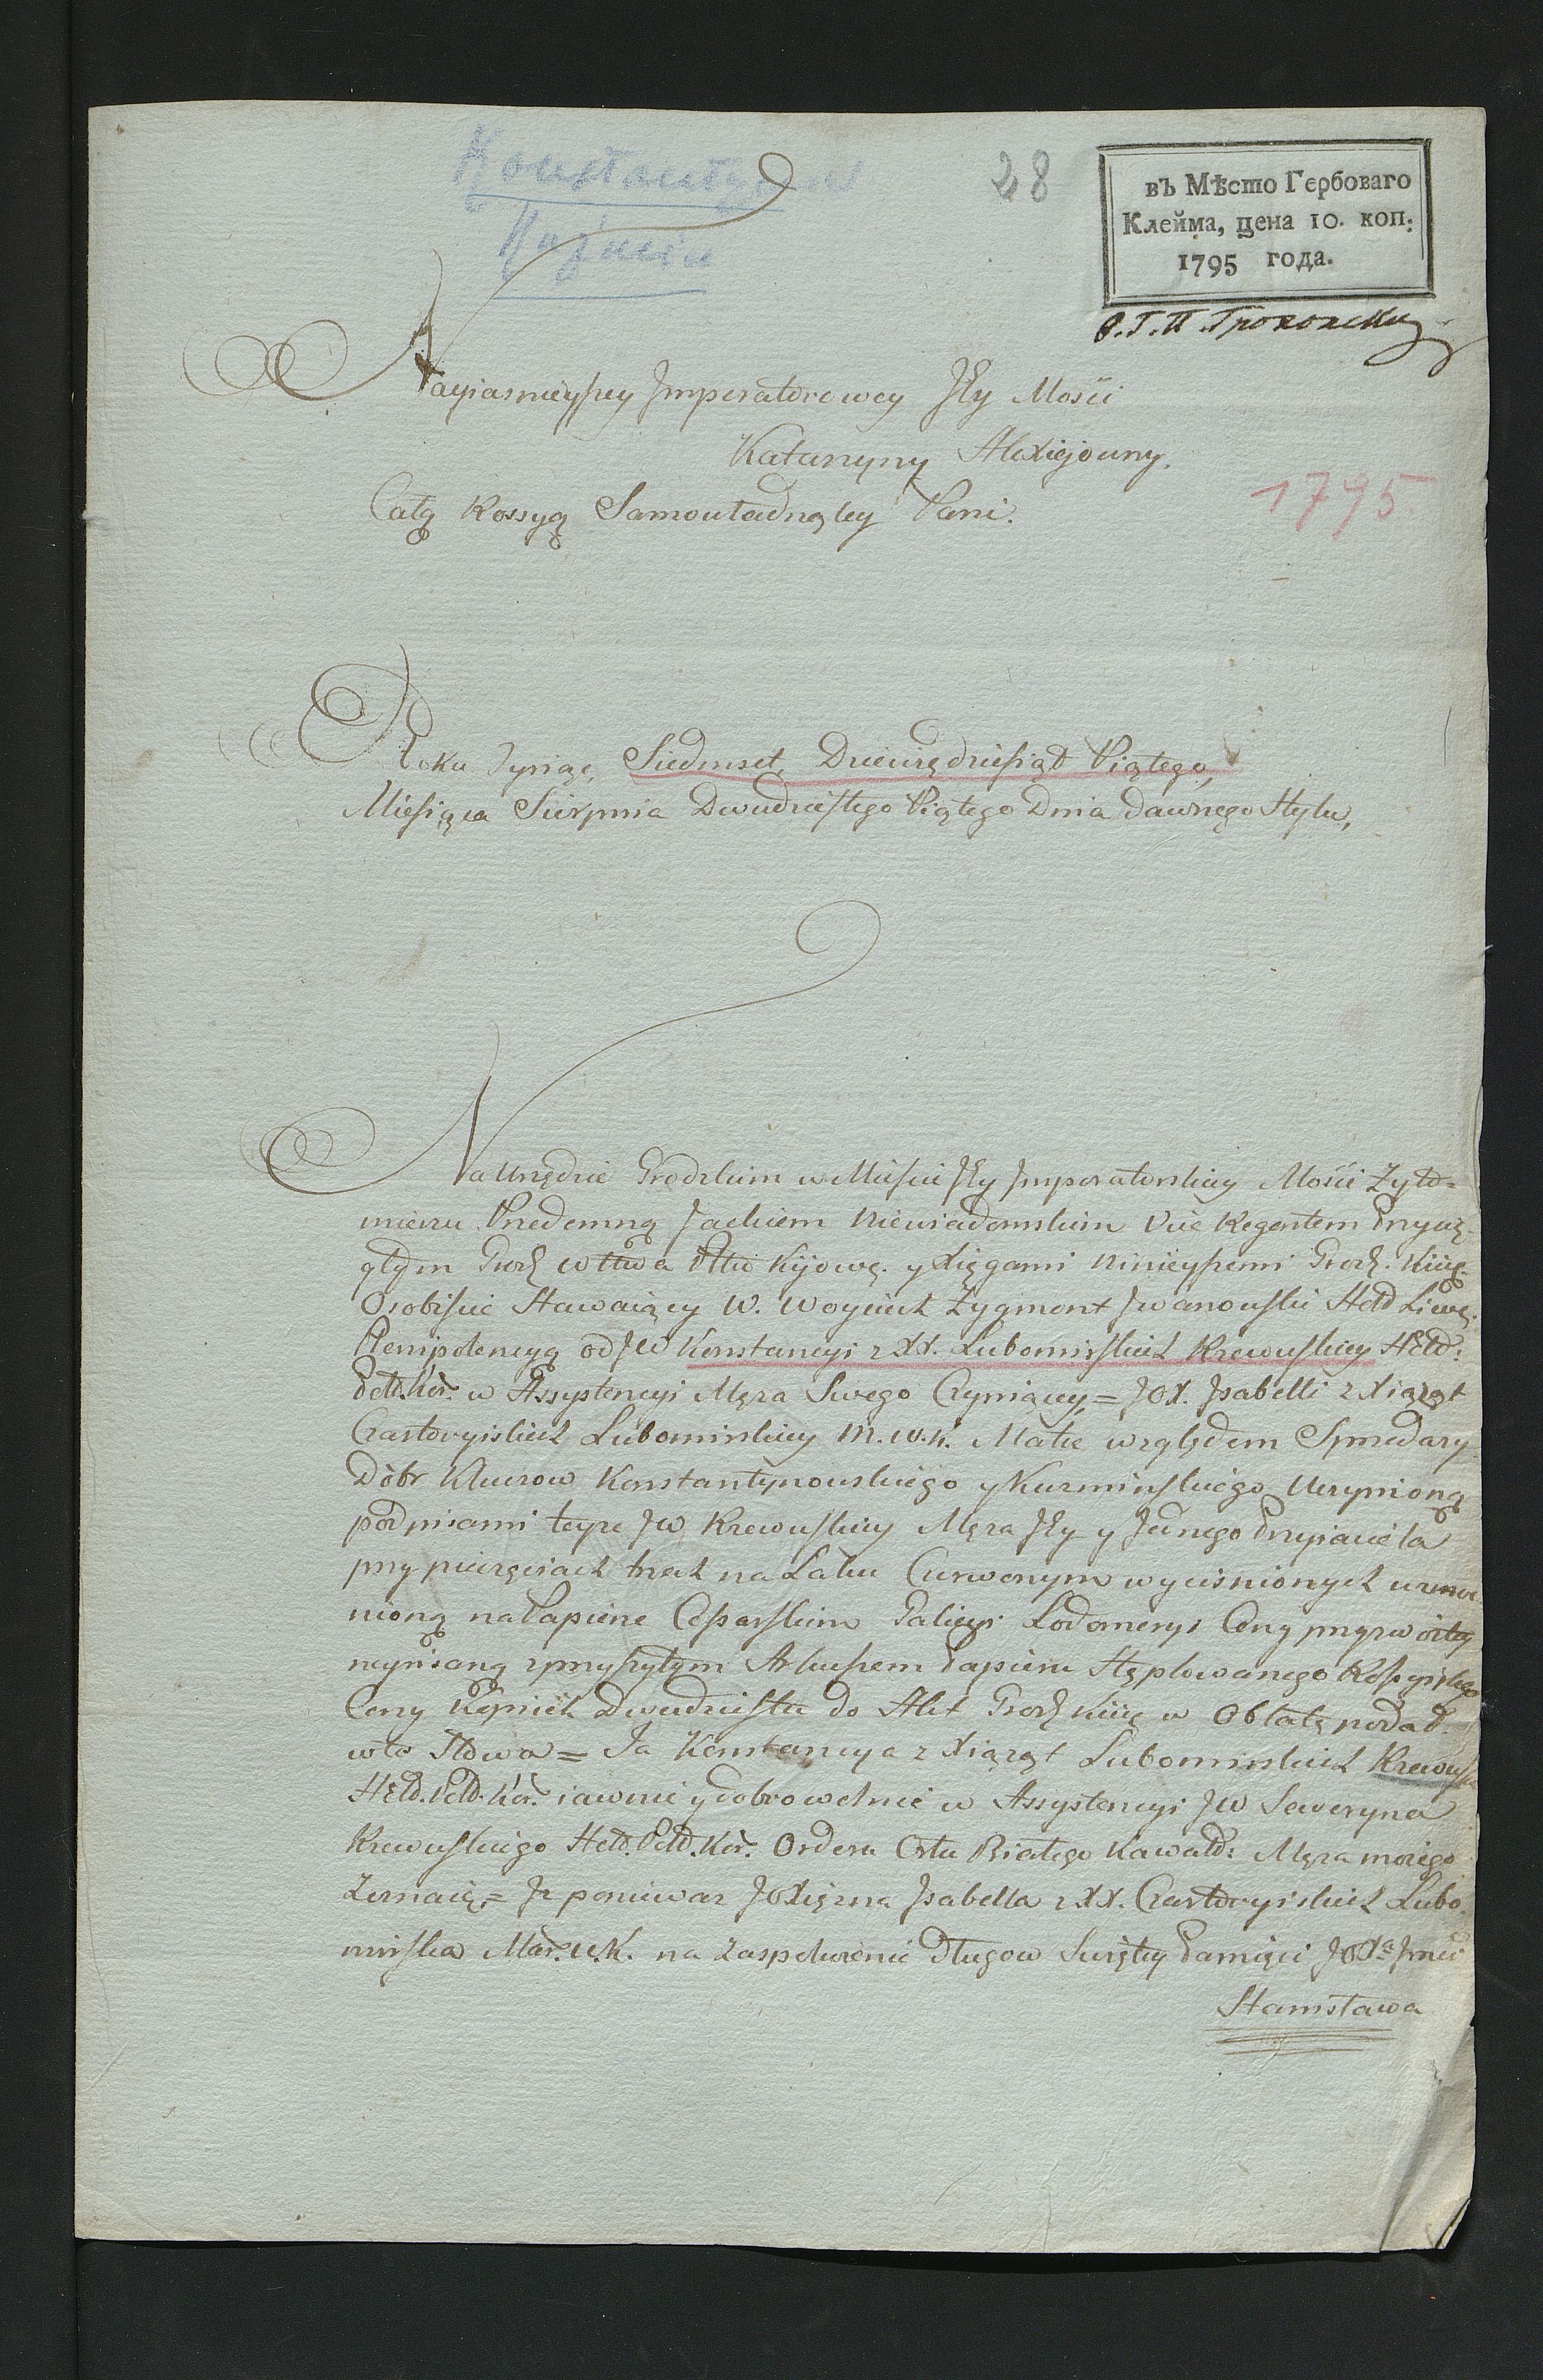 Konstantynów
Kuźmin
28
въ Мѣсто Гербоваго
Клейма, цена 10. коп:
1795 года.
Nayiasnieyszey Jmperatorowey JEy Mosci
Katarzyny Alexiejouny.
Całą Rossyą Samowładnącey Pani.
1795.
Roku Tysiąc, Siedmset, Dziewiędziesiąt Piątego,
Miesiąca Sierpnia Dwudziestego Piątego Dnia dawnego Stylu,
Na Urzędzie Grodzkim w Mieście JEy Jmperatorskiey Mości Żyto=
mierzu Przedemną Jackiem Niewiadomskim Vice Regentem Przysię-
głym Grodz. Wttwa Kijowę. y Xięgami Ninieyszemi Grodz. Kiię.
Osobiście Stawaiący W. Woyciech Zygmont Jwanouski
Plenipotencyą od JW Konstancyi z XX. Lubomirskich Rzewuskiey Hetd:
Pold. Kor. w Assystencyi Męża Swego Czyniącey = JOX. Jsabelli z Xiążąt
Czartoryiskich Lubomirskiey M. W. K. Matce względem Sprzedaży
Dóbr Kluczow Konstantynouskiego y Kuzminskiego Uczynioną
podpisami teyże JW. Rzewuskiey Męża JEy y Jednego Przyiaciela
przy pieczęciach trzech na Laku Czerwonym wyciśnionych wzmoc
nioną na Papierze Cesarskim Galicyi Lodomeryi Ceny przyzwoitey
napisaną z przyszytym Arkuszem Papieru Stęplowanego Rossyiskiego
Ceny Kopiiek Dwudziestu do Akt Grodz Kiię w Oblatę podał.
w te Słowa = Ja Konstancya z Xiążąt Lubomirskich Rzewuska
Hetd. Pold. Kor. iawnie y dobrowolnie w Assystencyi JW Seweryna
Rzewuskiego Hetd. Pold. Kor. Orderu Orła Białego Kawald: Męża moiego
Zeznaię = Jż ponieważ JOXiężna Jsabella z XX. Czartoryiskich Lubo-
mirska Mar. W. K. na Zaspokoienie Długow Swiętey Pamięci JOXa Jmci
Stanisława